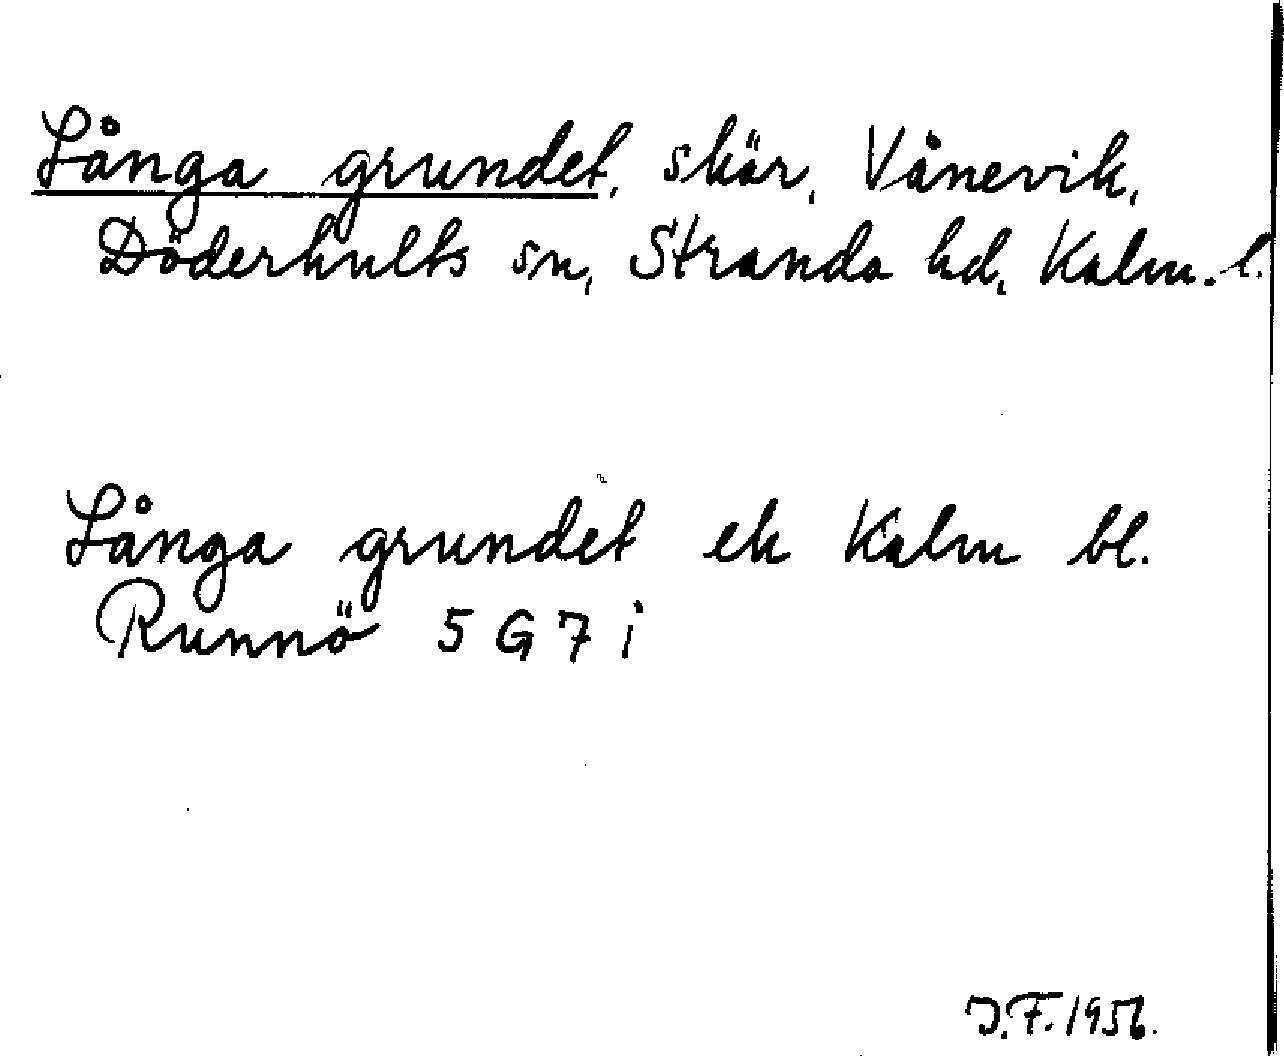 Långa grundet, skär, Vånevik,
Döderhults sn, Stranda hd, Kalm. l.
Långa grundet ek Kalm bl.
Runnö 5 G 7 i
J.F. 1956.